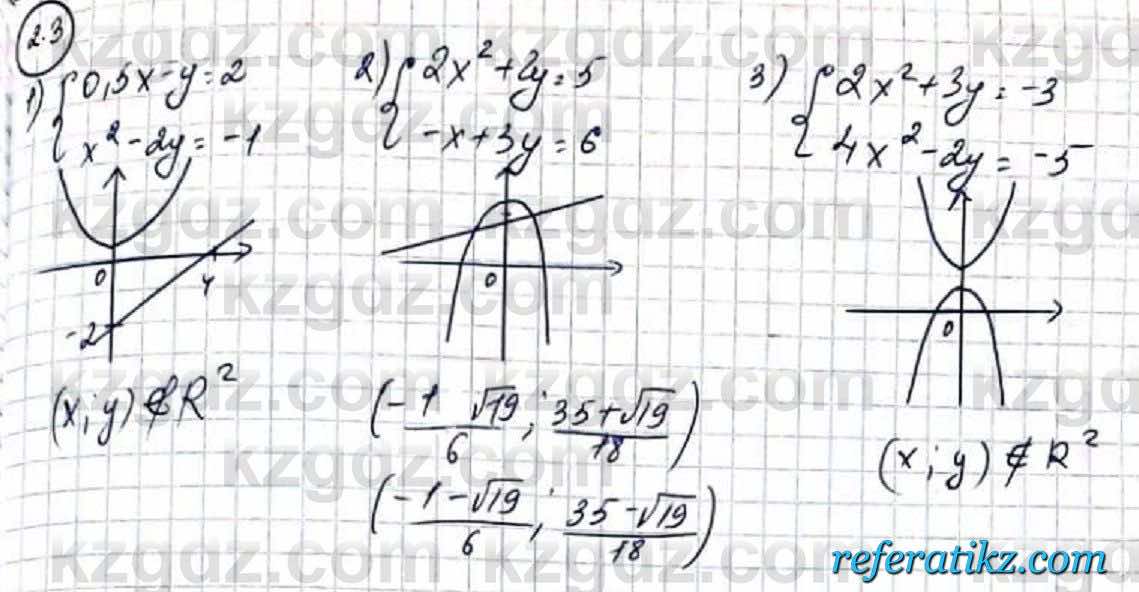 2.3
1) { 0,5x - y = 2
x² - 2y = -1
0
4
-2
(x; y) ∉ R²
2) { 2x² + 2y = 5
-x + 3y = 6
0
(-1 √19 / 6 ; 35+√19 / 18)
(-1-√19 / 6 ; 35-√19 / 18)
3) { 2x² + 3y = -3
4x² - 2y = -5
0
(x; y) ∉ R²
kzgdz.com
referatikz.com